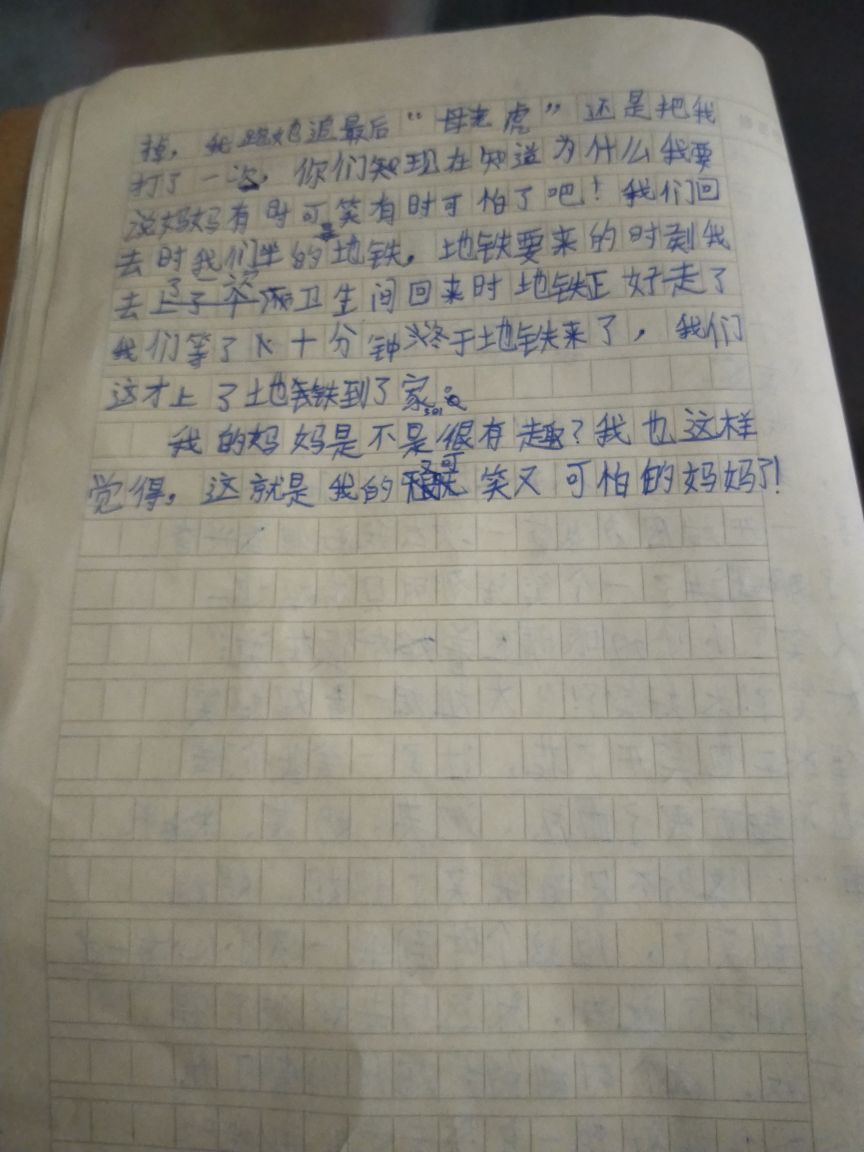 掉，我跑她追最后“母老虎”还是把我
打了一次，你们知现在知道为什么我要
说妈妈有时可笑有时可怕了吧！我们回
去时我们坐的地铁，地铁要来的时刻我
去上了个卫生间回来时地铁正好走了
我们等了人十分钟终于地铁来了，我们
这才上了地铁到了家。
我的妈妈是不是很有趣？我也这样
觉得。这就是我的又可笑又可怕的妈妈了！